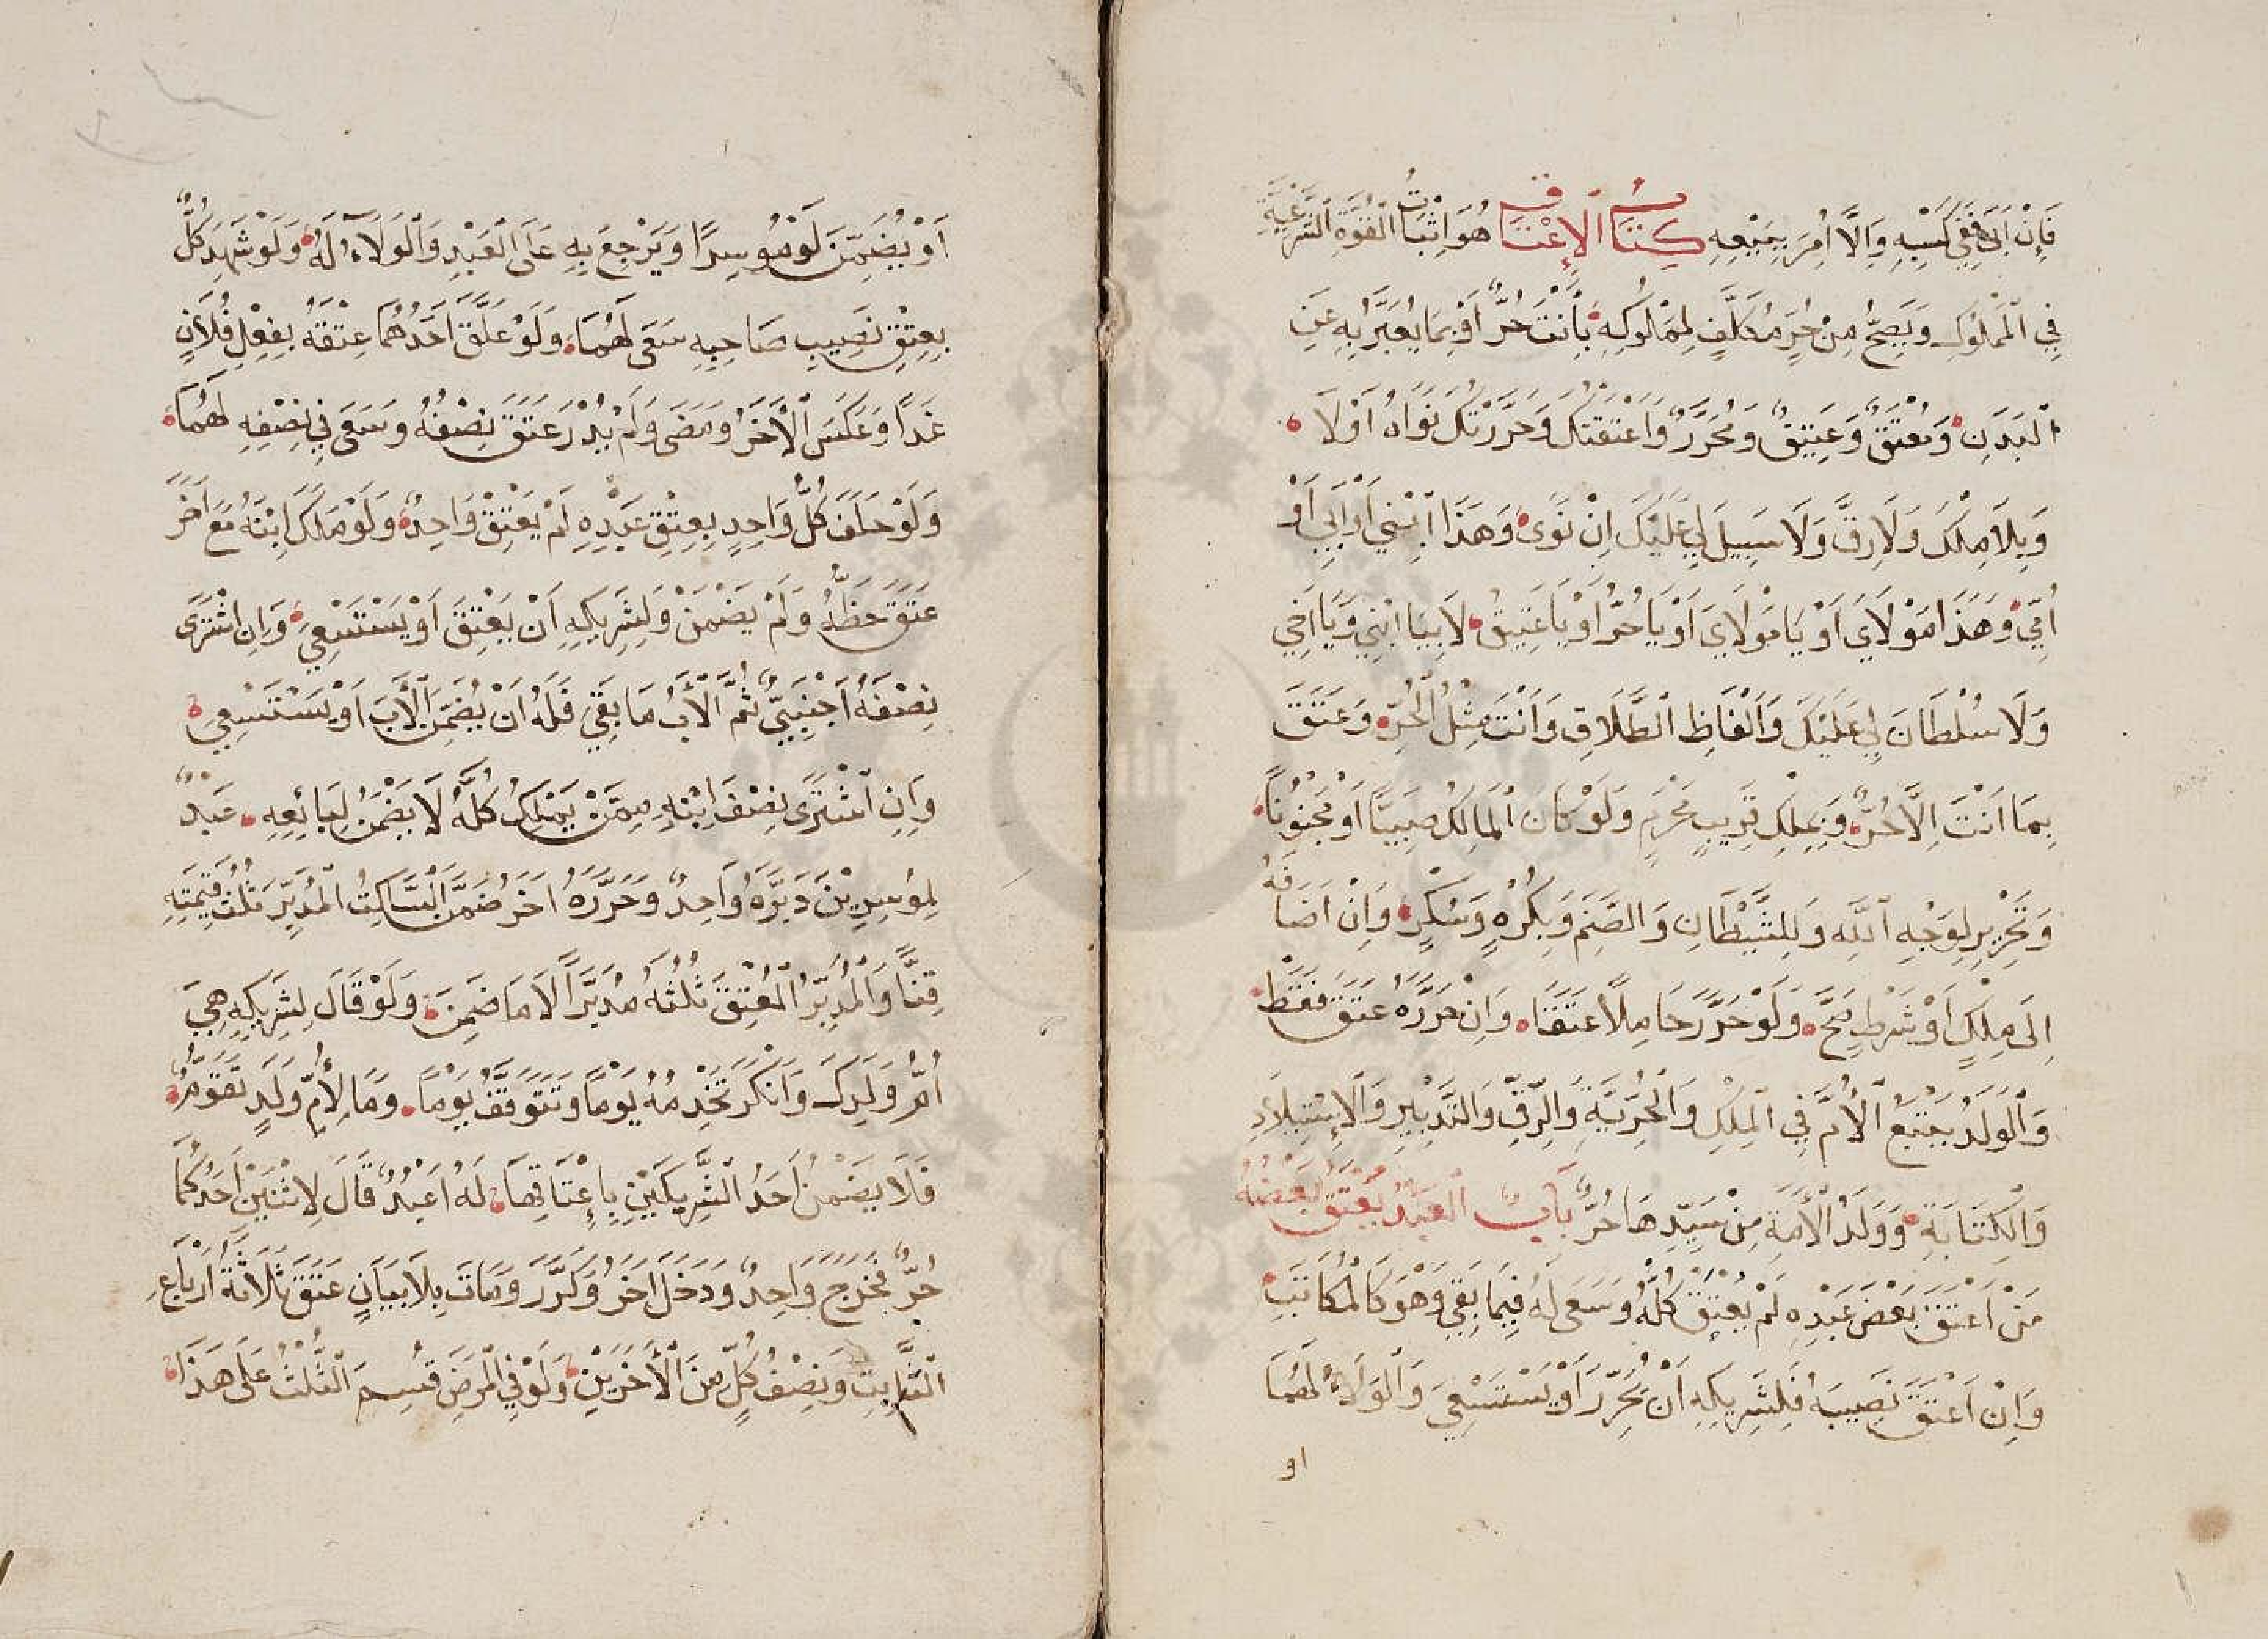 فَإِنْ أَبَى فَفِي كَسْبِهِ وَإِلَّا أُمِرَ بِبَيْعِهِ كِتَابُ الْإِعْتَاقِ هُوَ إِثْبَاتُ الْقُوَّةِ الشَّرْعِيَّةِ
فِي الْمَمْلُوكِ وَيَصِحُّ مِنْ حُرٍّ مُكَلَّفٍ لِمَمْلُوكِهِ بِأَنْتَ حُرٌّ أَوْ بِمَا يُعَبَّرُ بِهِ عَنِ
الْبَدَنِ وَمُعْتَقٌ وَعَتِيقٌ وَمُحَرَّرٌ وَأَعْتَقْتُكَ وَحَرَّرْتُكَ نَوَاهُ أَوْ لَا
وَبِلَا مِلْكَ وَلَا رِقَّ وَلَا سَبِيلَ لِي عَلَيْكَ إِنْ نَوَى وَهَذَا ابْنِي أَوْ أَبِي أَوْ
أُمِّي وَهَذَا مَوْلَايَ أَوْ يَا مَوْلَايَ أَوْ يَا حُرُّ أَوْ يَا عَتِيقُ لَا بِيَا ابْنِي وَيَا أَخِي
وَلَا سُلْطَانَ لِي عَلَيْكَ وَأَلْفَاظِ الطَّلَاقِ وَأَنْتَ مِثْلُ الْحُرِّ وَعَتَقَ
بِمَا أَنْتَ إِلَّا حُرٌّ وَبِمِلْكِ قَرِيبٍ مَحْرَمٍ وَلَوْ كَانَ الْمَالِكُ صَبِيًّا أَوْ مَجْنُونًا
وَتَحْرِيرٍ لِوَجْهِ اللَّهِ وَلِلشَّيْطَانِ وَالصَّنَمِ وَبِكُرْهٍ وَسُكْرٍ وَإِنْ أَضَافَهُ
إِلَى مِلْكٍ أَوْ شَرْطٍ صَحَّ وَلَوْ حَرَّرَ حَامِلًا عَتَقَا وَإِنْ حَرَّرَهُ عَتَقَ فَقَطْ
وَالْوَلَدُ يَتْبَعُ الْأُمَّ فِي الْمِلْكِ وَالْحُرِّيَّةِ وَالرِّقِّ وَالتَّدْبِيرِ وَالْإِسْتِيلَادِ
وَالْكِتَابَةِ وَوَلَدُ الْأَمَةِ مِنْ سَيِّدِهَا حُرٌّ بَابُ الْعَبْدُ يُعْتَقُ بَعْضُهُ
مَنْ أَعْتَقَ بَعْضَ عَبْدِهِ لَمْ يُعْتِقْ كُلُّهُ وَسَعَى لَهُ فِيمَا بَقِيَ وَهْوَ كَالْمُكَاتَبِ
وَإِنْ أَعْتَقَ نَصِيبَهُ فَلِشَرِيكِهِ أَنْ يُحَرِّرَ أَوْ يَسْتَسْعِيَ وَالْوَلَاءُ لَهُمَا
او
أَوْ يُضَمِّنَ لَوْ مُوسِرًا وَيَرْجِعَ بِهِ عَلَى الْعَبْدِ وَالْوَلَاءُ لَهُ وَلَوْ شَهِدَ كُلٌّ
بِعِتْقِ نَصِيبِ صَاحِبِهِ سَعَى لَهُمَا وَلَوْ عَلَّقَ أَحَدُهُمَا عِتْقَهُ بِفِعْلِ فُلَانٍ
غَدًا وَعَكَسَ الْأَخَرُ وَمَضَى وَلَمْ يُدْرَ عَتَقَ نِصْفُهُ وَسَعَى فِي نِصْفِهِ لَهُمَا
وَلَوْ حَلَفَ كُلُّ وَاحِدٍ بِعِتْقِ عَبْدِهِ لَمْ يَعْتِقْ وَاحِدٌ وَلَوْ مَلَكَ ابْنَهُ مَعَ أَخَرَ
عَتَقَ حَظُّهُ وَلَمْ يَضْمَنْ وَلِشَرِيكِهِ أَنْ يَعْتِقَ أَوْ يَسْتَسْعِيَ وَإِنِ اشْتَرَى
نِصْفَهُ أَجْنَبِيٌّ ثُمَّ الْأَبُ مَا بَقِيَ فَلَهُ أَنْ يُضَمِّنَ الْأَبَ أَوْ يَسْتَسْعِيَ
وَإِنِ اشْتَرَى نِصْفَ ابْنِهِ مِمَّنْ يَمْلِكُ كُلَّهُ لَا يَضْمَنُ لِبَائِعِهِ عَبْدٌ
لِمُوسِرِيْنَ دَبَّرَهُ وَاحِدٌ وَحَرَّرَهُ أَخَرُ ضَمَّنَ السَّاكِتُ الْمُدَبِّرَ ثُلُثَ قِيمَتِهِ
قِنًّا وَالْمُدَبِّرُ الْمُعْتِقَ ثُلُثَهُ مُدَبَّرًا لَا مَا ضَمِنَ وَلَوْ قَالَ لِشَرِيكِهِ هِيَ
أُمُّ وَلَدِكَ وَأَنْكَرَ تَخْدِمُهُ يَوْمًا وَتَتَوَقَّفُ يَوْمًا وَمَا لِأُمِّ وَلَدٍ تَقَوُّمٌ
فَلَا يَضْمَنُ أَحَدُ الشَّرِيكَيْنِ بِإِعْتَاقِهَا لَهُ أَعْبُدٌ قَالَ لِاثْنَيْنِ أَحَدُكُمَا
حُرٌّ فَخَرَجَ وَاحِدٌ وَدَخَلَ أَخَرُ وَكَرَّرَ وَمَاتَ بِلَا بَيَانٍ عَتَقَ ثَلَاثَةُ أَرْبَاعِ
الثَّابِتِ وَنِصْفُ كُلٍّ مِنَ الْأَخَرَيْنِ وَلَوْ فِي الْمَرَضِ قُسِمَ الثُّلُثُ عَلَى هَذَا